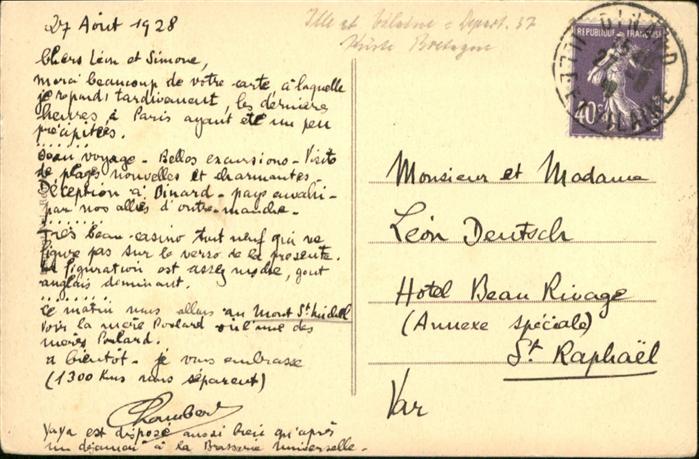 27 Août 1928
Chers Léon et Simone,
merci beaucoup de votre carte, à laquelle
je reponds tardivement, les dernières
heures à Paris ayant été un peu
précipitées.
Beau voyage - Belles excursions - Visite
de plages nouvelles et charmantes -
Déception à Dinard - pays envahi
par nos alliés d'outre-manche -
Très beau casino tout neuf qui ne
figure pas sur le verso de la présente.
La figuration est assez moche, gout
anglais dominant.
Ce matin nous allons au Mont St Michel
voir la mère Poulard ou l'une des
mères Poulard.
a bientôt - je vous embrasse
(1300 Kms nous séparent)
Yaya est disposé aussi bien qu'après
un déjeuner à la Brasserie Universelle -
Ille et Vilaine = Depart. 37
Bretagne
REPUBLIQUE FRANÇAISE
40c
DINARD
ILLE-ET-VILAINE
Monsieur et Madame
Léon Deutsch
Hotel Beau Rivage
(Annexe spéciale)
St Raphaël
Var